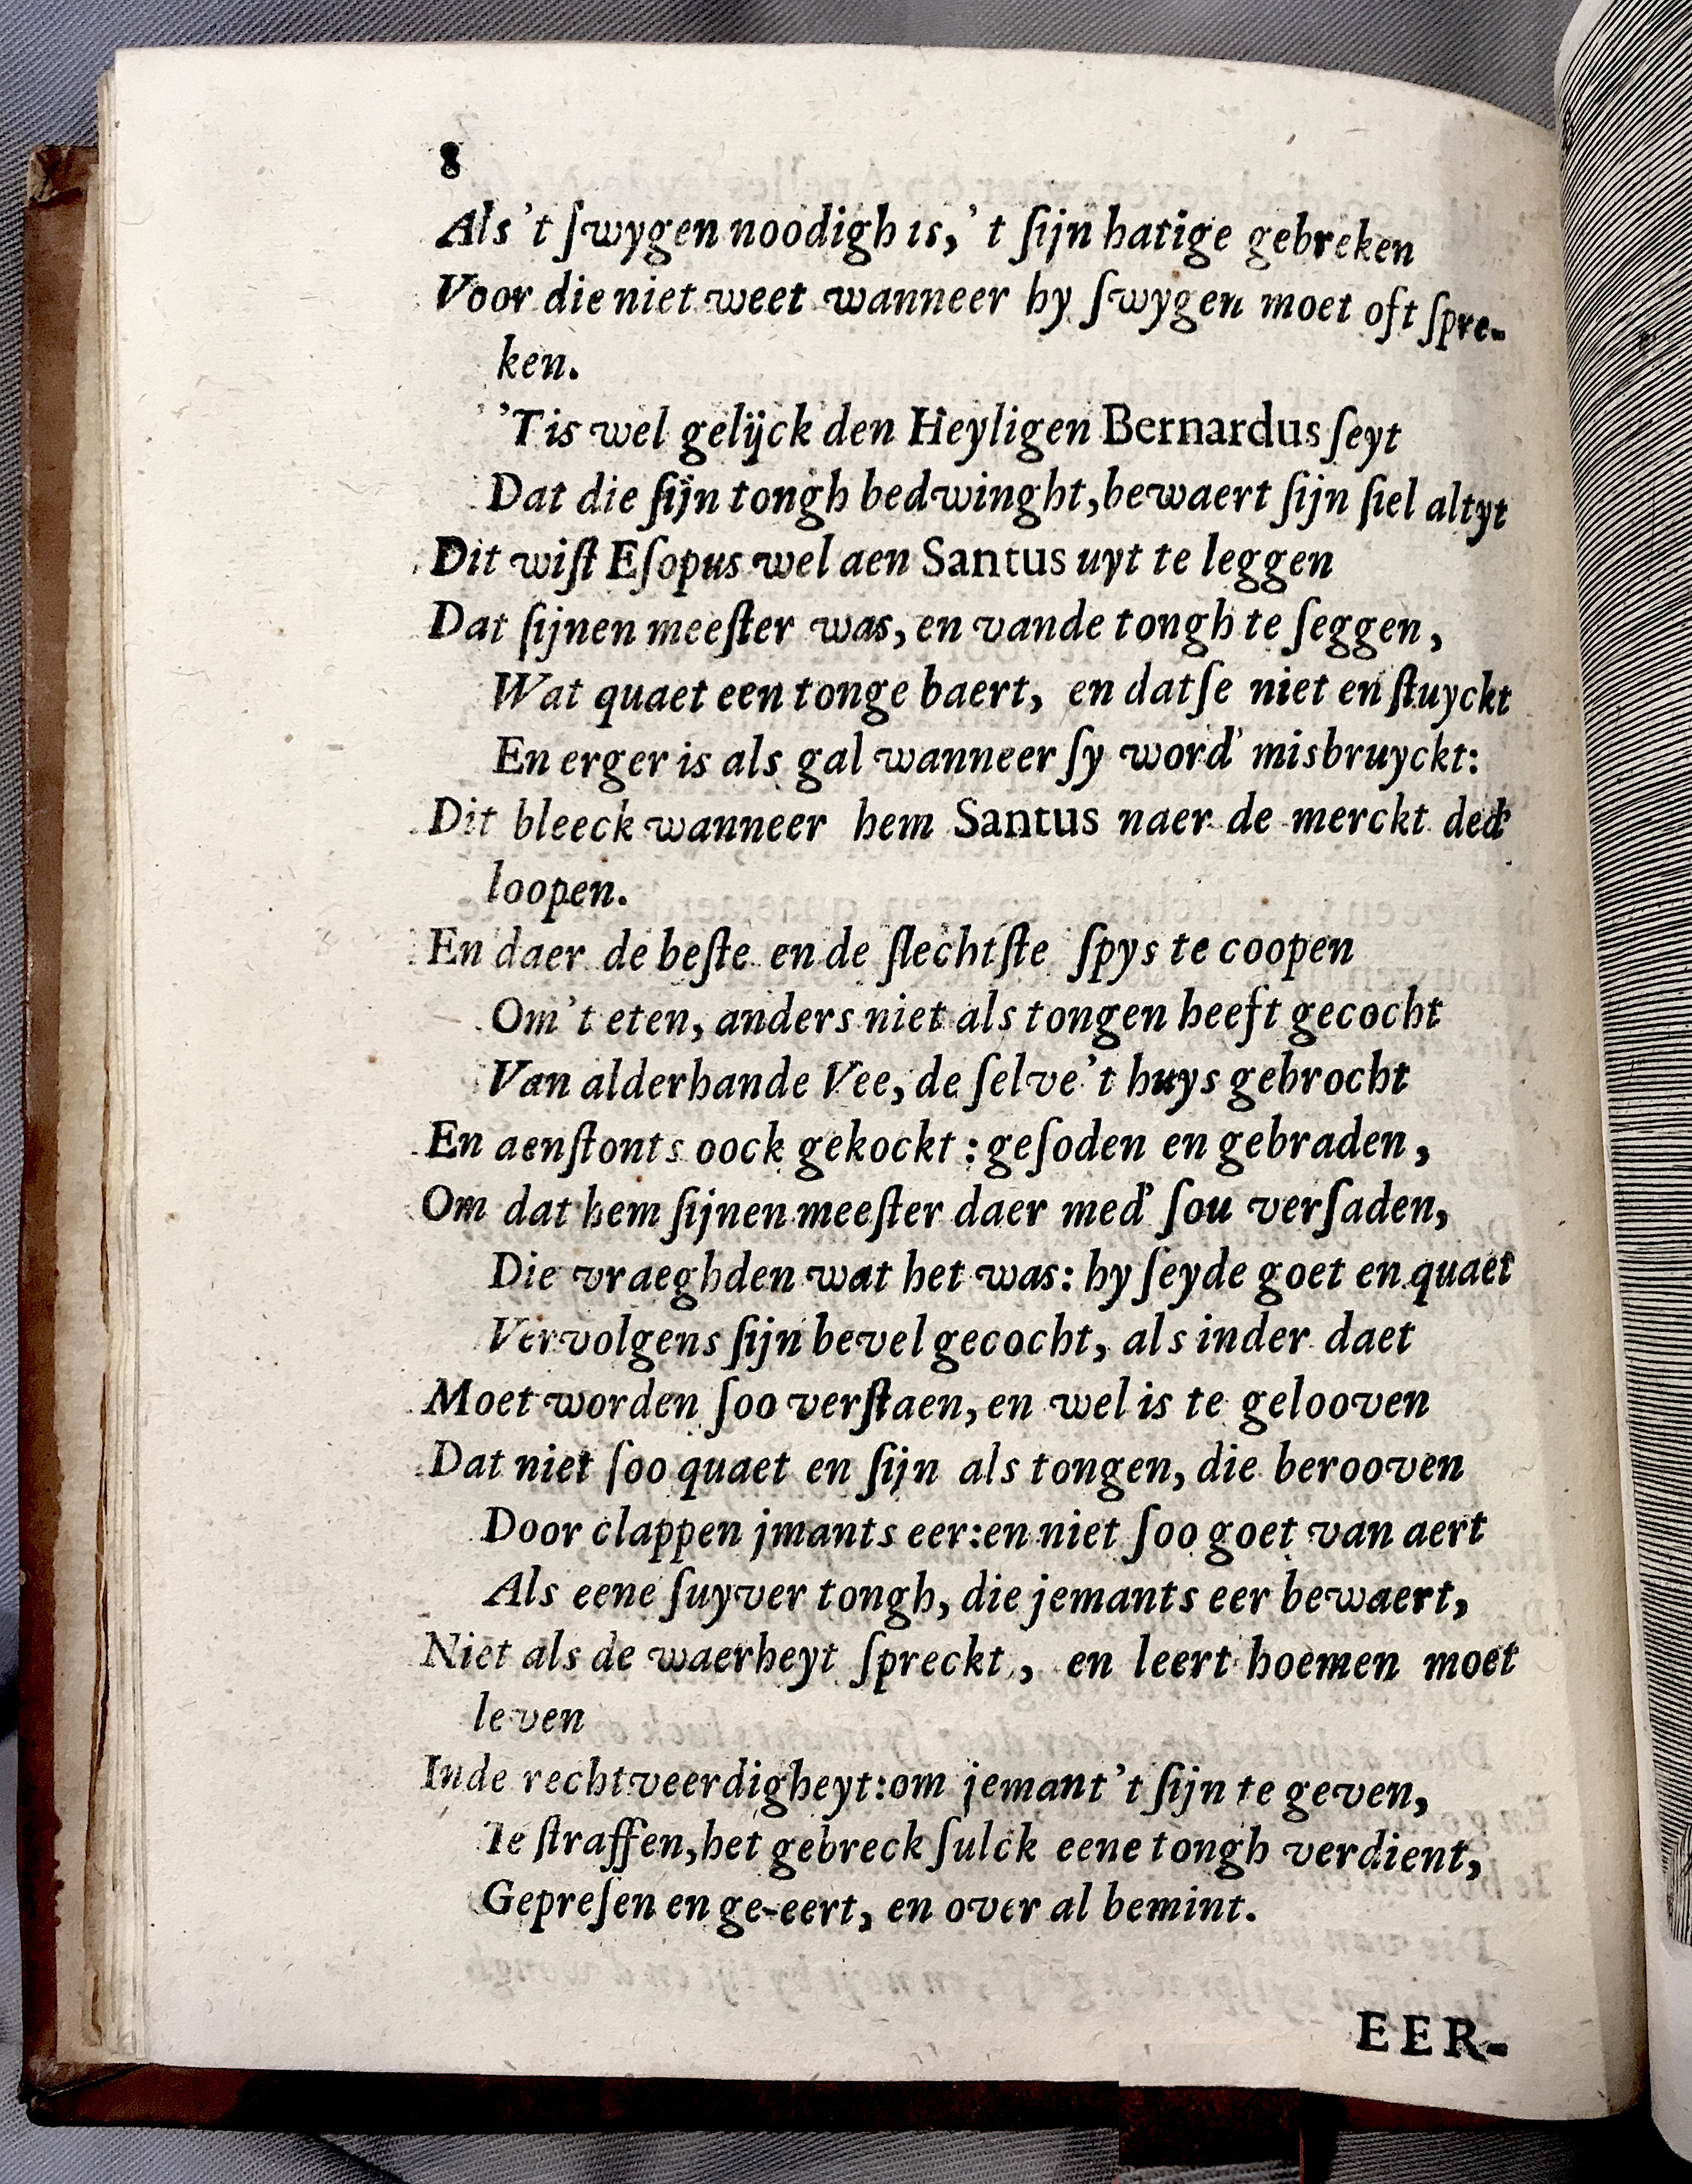 8
Als 't ſwygen noodigh is, 't ſijn hatige gebreken
Voor die niet weet wanneer hy ſwygen moet oft ſpre-
ken.
'Tis wel gelijck den Heyligen Bernardus ſeyt
Dat die ſijn tongh bedwinght, bewaert ſijn ſiel altyt
Dit wiſt Eſopus wel aen Santus uyt te leggen
Dat ſijnen meeſter was, en vande tongh te ſeggen,
Wat quaet een tonge baert, en datſe niet en ſtuyckt
En erger is als gal wanneer ſy word' misbruyckt:
Dit bleeck wanneer hem Santus naer de merckt ded'
loopen.
En daer de beſte en de ſlechtſte ſpys te coopen
Om 't eten, anders niet als tongen heeft gecocht
Van alderhande Vee, de ſelve 't huys gebrocht
En aenſtonts oock gekockt: geſoden en gebraden,
Om dat hem ſijnen meeſter daer med' ſou verſaden,
Die vraeghden wat het was: hy ſeyde goet en quaet
Vervolgens ſijn bevel gecocht, als inder daet
Moet worden ſoo verſtaen, en wel is te gelooven
Dat niet ſoo quaet en ſijn als tongen, die berooven
Door clappen jmants eer: en niet ſoo goet van aert
Als eene ſuyver tongh, die jemants eer bewaert,
Niet als de waerheyt ſpreckt, en leert hoemen moet
leven
Inde rechtveerdigheyt: om jemant 't ſijn te geven,
Te ſtraffen, het gebreck ſulck eene tongh verdient,
Gepreſen en ge-eert, en over al bemint.
EER-